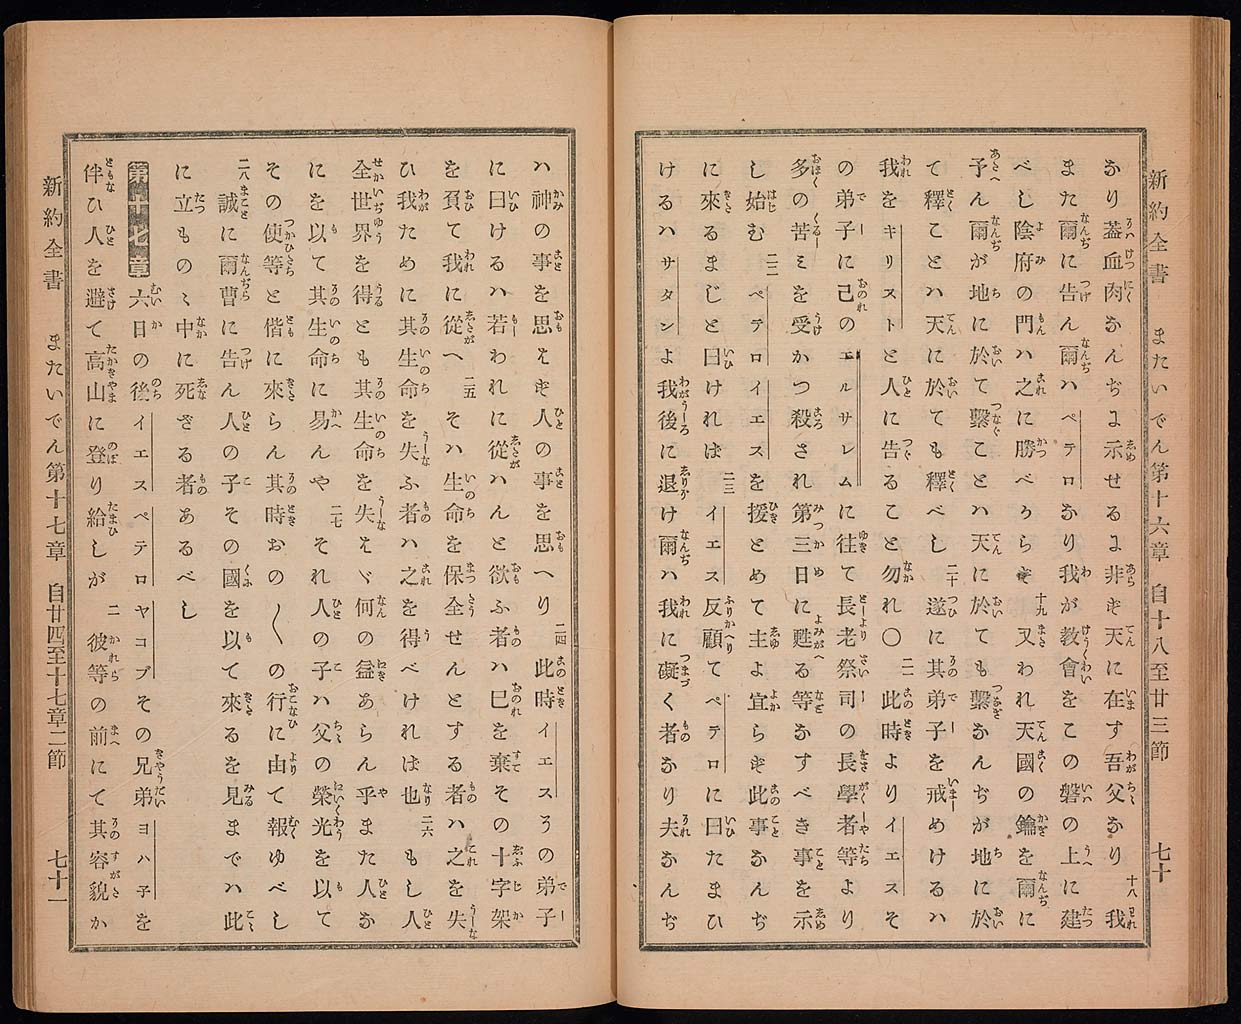 新約全書 またいでん第十六章 自十八至廿三節 七十
なり蓋血肉なんぢに示せるに非ず天に在す吾父なり 十八 我
また爾に告ん爾ハペテロなり我が教會をこの磐の上に建
べし陰府の門ハ之に勝べからず 十九 又われ天國の鑰を爾に
予ん爾が地に於て繫ことハ天に於ても繫なんぢが地に於
て釋ことハ天に於ても釋べし 二十 遂に其弟子を戒めけるハ
我をキリストと人に告ること勿れ〇 二一 此時よりイエスそ
の弟子に己のエルサレムに往て長老祭司の長學者等より
多の苦ミを受かつ殺され第三日に甦る等なすべき事を示
し始む 二二 ペテロイエスを援とめて主よ宜らず此事なんぢ
に來るまじと曰ければ 二三 イエス反顧てペテロに曰たまひ
けるハサタンよ我後に退け爾ハ我に礙く者なり夫なんぢ
ハ神の事を思ハず人の事を思へり 二四 此時イエスその弟子
に曰けるハ若われに從ハんと欲ふ者ハ己を棄その十字架
を負て我に從へ 二五 そハ生命を保全せんとする者ハ之を失
ひ我ために其生命を失ふ者ハ之を得べければ也 二六 もし人
全世界を得とも其生命を失ハヾ何の益あらん乎また人な
にを以て其生命に易んや 二七 それ人の子ハ父の榮光を以て
その使等と偕に來らん其時おの〱の行に由て報ゆべし
二八 誠に爾曹に告ん人の子その國を以て來るを見までハ此
に立ものゝ中に死ざる者あるべし
第十七章 六日の後イエスペテロヤコブその兄弟ヨハ子を
伴ひ人を避て高山に登り給しが 二 彼等の前にて其容貌か
新約全書 またいでん第十七章 自廿四至十七章二節 七十一